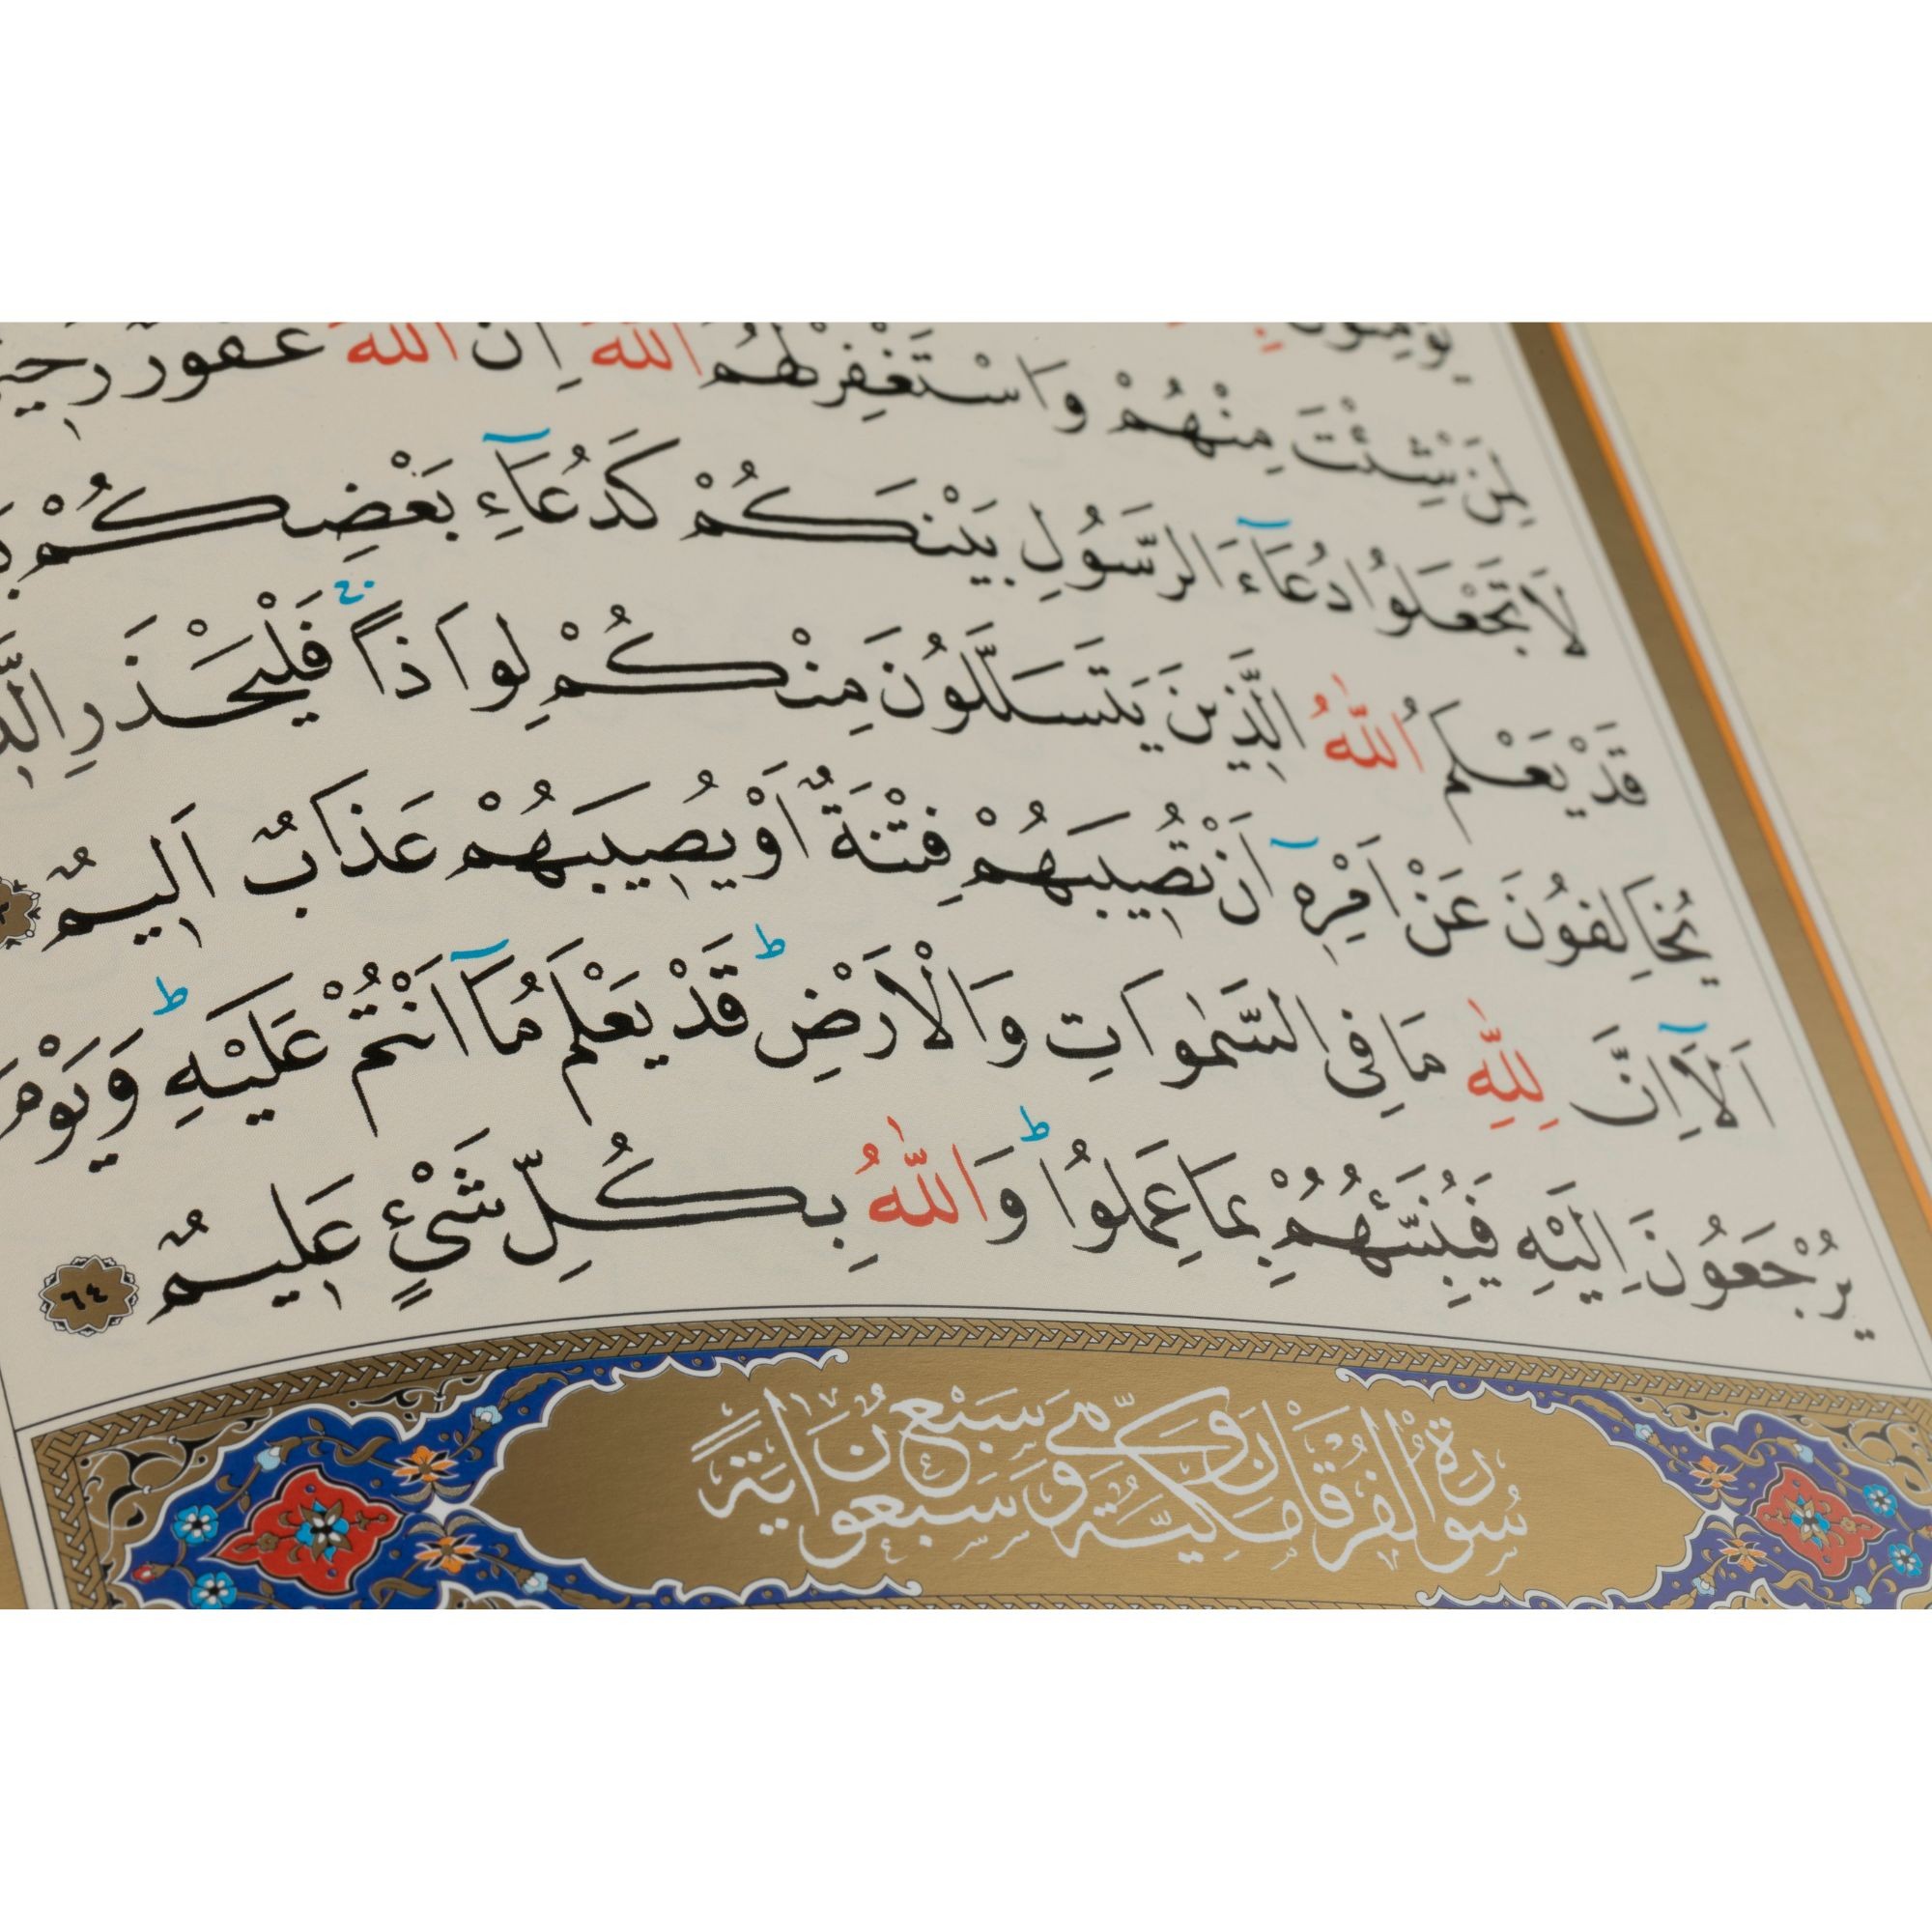 لِمَنْ شِئْتَ مِنْهُمْ وَاسْتَغْفِرْ لَهُمُ اللّٰهَ اِنَّ اللّٰهَ غَفُورٌ
لَا تَجْعَلُوا دُعَٓاءَ الرَّسُولِ بَيْنَكُمْ كَدُعَٓاءِ بَعْضِكُمْ
قَدْ يَعْلَمُ اللّٰهُ الَّذ۪ينَ يَتَسَلَّلُونَ مِنْكُمْ لِوَاذًاۚ فَلْيَحْذَرِ
يُخَالِفُونَ عَنْ اَمْرِه۪ٓ اَنْ تُص۪يبَهُمْ فِتْنَةٌ اَوْ يُص۪يبَهُمْ عَذَابٌ اَل۪يمٌ
اَلَٓا اِنَّ لِلّٰهِ مَا فِي السَّمٰوَاتِ وَالْاَرْضِۜ قَدْ يَعْلَمُ مَٓا اَنْتُمْ عَلَيْهِۜ وَيَوْمَ
يُرْجَعُونَ اِلَيْهِ فَيُنَبِّئُهُمْ بِمَا عَمِلُواۜ وَاللّٰهُ بِكُلِّ شَيْءٍ عَل۪يمٌ ٦٤
سُورَةُ الْفُرْقَانِ مَكِّيَّةٌ وَهِيَ سَبْعٌ وَسَبْعُونَ اٰيَةً